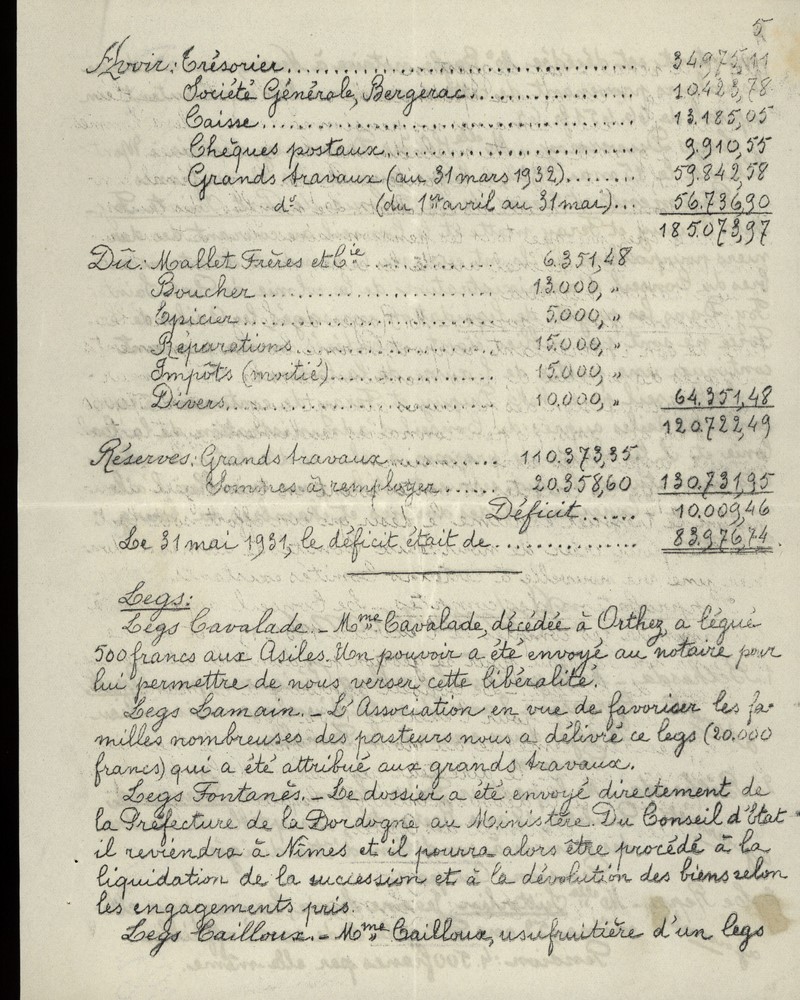 5
Avoir: Trésorier........ 34.975,11
Société Générale, Bergerac........ 10.423,78
Caisse........ 13.185,05
Chèques postaux........ 9.910,55
Grands travaux (au 31 mars 1932)........ 59.842,58
d° (du 1er avril au 31 mai)... 56.736,90
185.073,97
Dû: Mallet Frères et Cie........ 6.351,48
Boucher........ 13.000, "
Epicier........ 5.000, "
Réparations........ 15.000, "
Impôts (moitié)........ 15.000, "
Divers........ 10.000, " 64.351,48
120.722,49
Réserves: Grands travaux........ 110.373,35
Sommes à remployer...... 20.358,60 130.731,95
Déficit...... 10.009,46
Le 31 mai 1931, le déficit était de........ 83.976,74.
Legs:
Legs Cavalade.- Mme Cavalade, décédée à Orthez, a légué
500 francs aux Asiles. Un pouvoir a été envoyé au notaire pour
lui permettre de nous verser cette libéralité.
Legs Lamain.- L'Association en vue de favoriser les fa-
milles nombreuses des pasteurs nous a délivré ce legs (20.000
francs) qui a été attribué aux grands travaux.
Legs Fontanès.- Le dossier a été envoyé directement de
la Préfecture de la Dordogne au Ministère. Du Conseil d'Etat
il reviendra à Nîmes et il pourra alors être procédé à la
liquidation de la succession et à la dévolution des biens selon
les engagements pris.
Legs Cailloux.- Mme Cailloux, usufruitière d'un legs